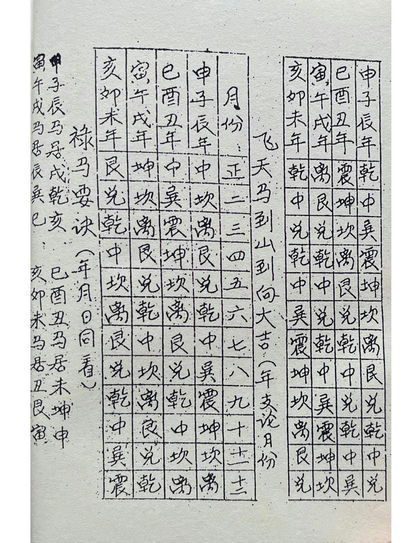 申子辰年中巽震坤坎离艮兑乾中兑乾
巳酉丑年震坤坎离艮兑乾中兑乾中巽
寅午戌年离艮兑乾中兑乾中巽震坤坎
亥卯未年乾中兑乾中巽震坤坎离艮兑
飞天马到山到向大吉：（年支论月份
月份正二三四五六七八九十十一十二
申子辰年坎离艮兑乾中
巳酉丑年中巽震坤坎离艮兑乾中坎离
寅午戌年坤坎离艮兑乾中坎离艮兑乾
亥卯未年艮兑乾中坎离艮兑乾中巽震
禄马要诀（年月日同看）
申子辰马居戌乾亥 巳酉丑马居未坤申
寅午戌马居辰巽巳：亥卯未马居丑艮寅